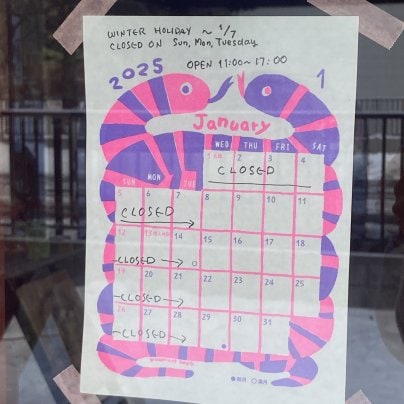 WINTER HOLIDAY ~ 1/7
CLOSED ON Sun, Mon, Tuesday
OPEN 11:00~17:00
2025
1
January
SUN MON TUE WED THU FRI SAT
1 2 3 4
CLOSED
5 6 7 8 9 10 11
CLOSED
12 13 14 15 16 17 18
CLOSED
19 20 21 22 23 24 25
CLOSED
26 27 28 29 30 31
CLOSED